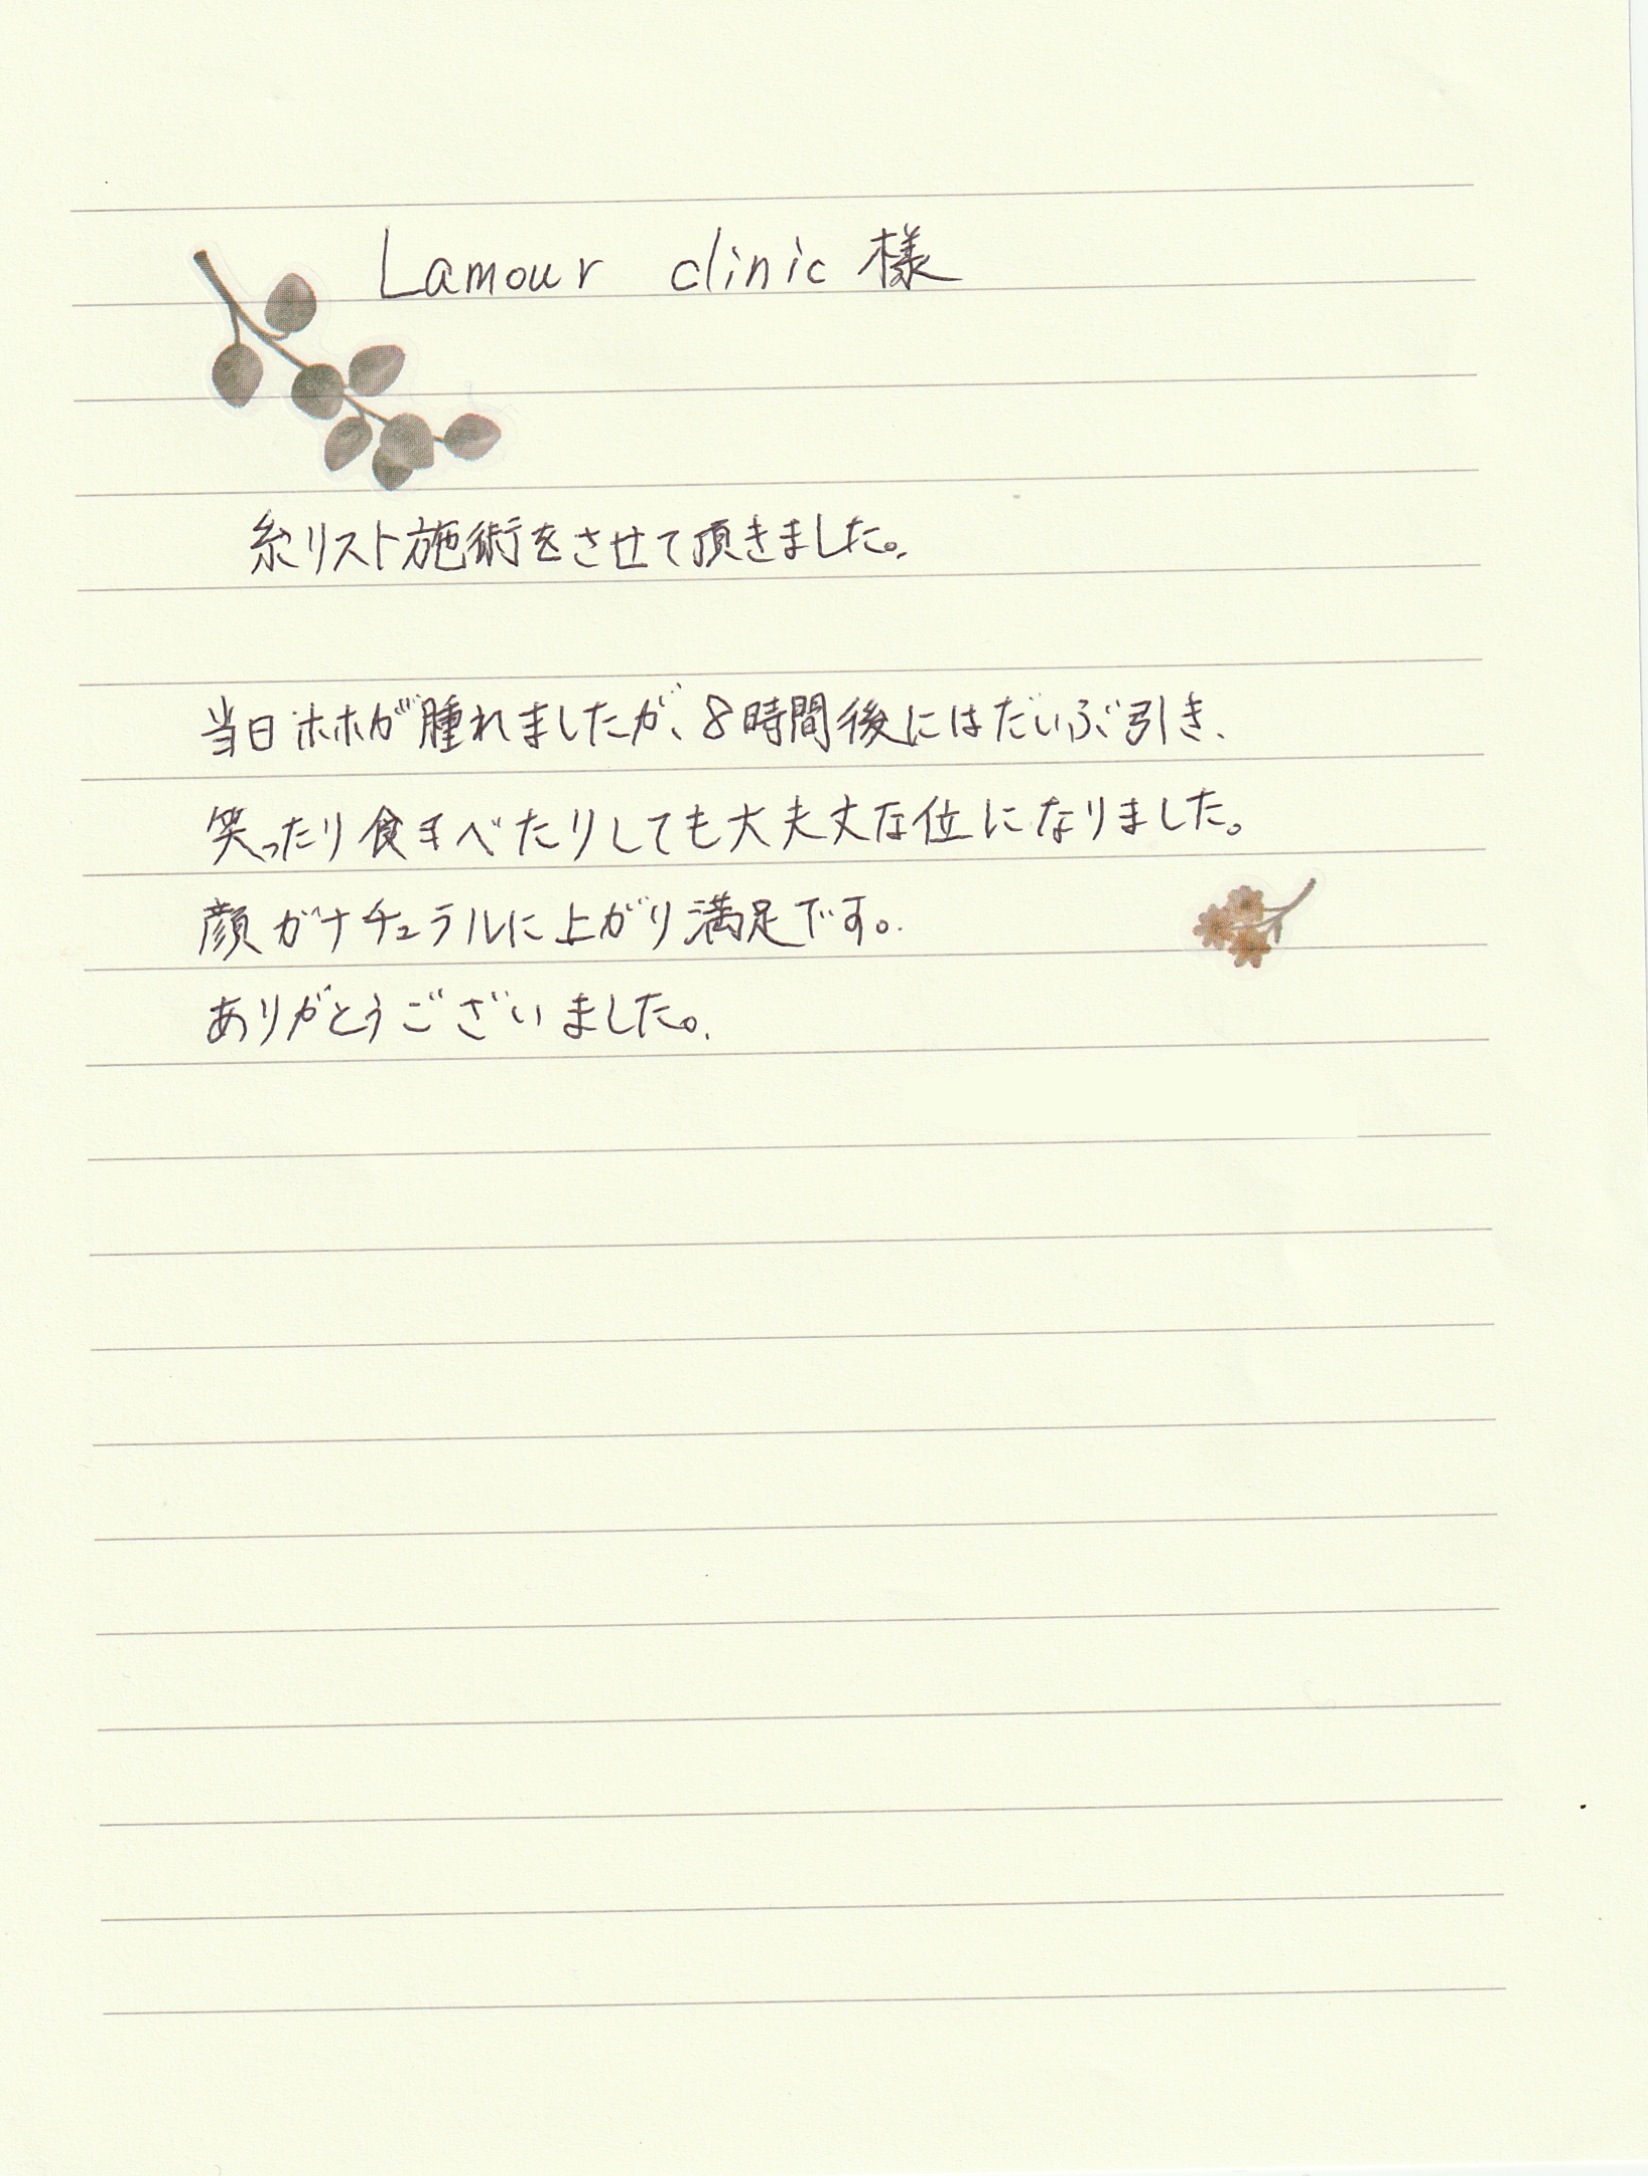 Lamour clinic 様
糸リスト施術をさせて頂きました。
当日ホホが腫れましたが、8時間後にはだいぶ引き、
笑ったり食べたりしても大夫丈な位になりました。
顔がナチュラルに上がり満足です。
ありがとうございました。